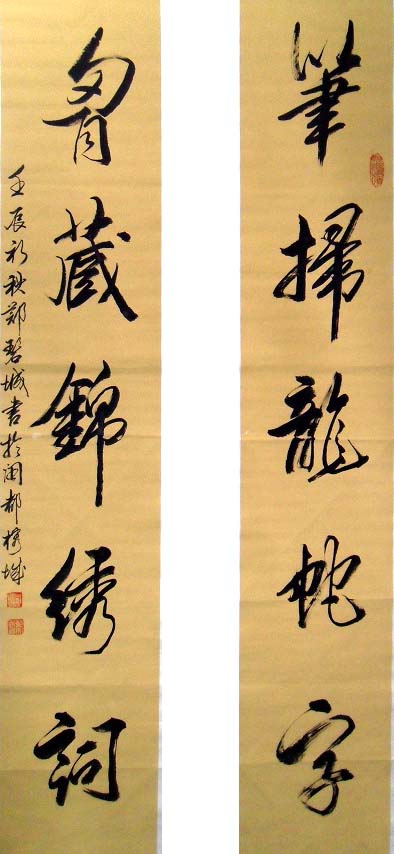 筆掃龍蛇字
胷藏錦绣詞
壬辰初秋鄭碧城書於闽都榕城